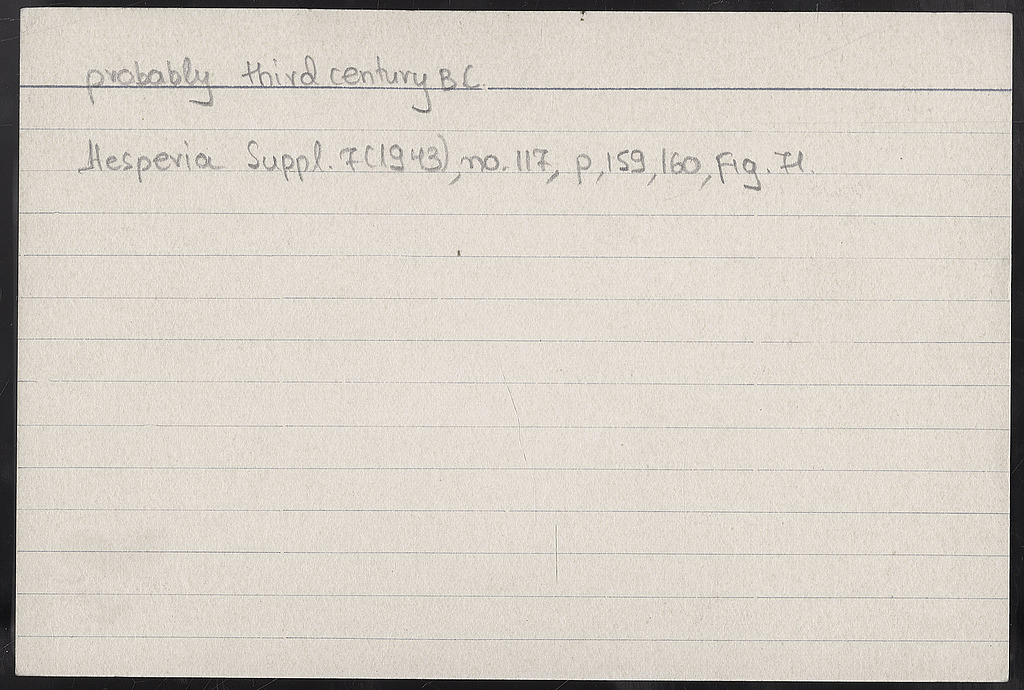 probably third century B C.
Hesperia Suppl. 7(1943), no. 117, p, 159, 160, Fig. 71.